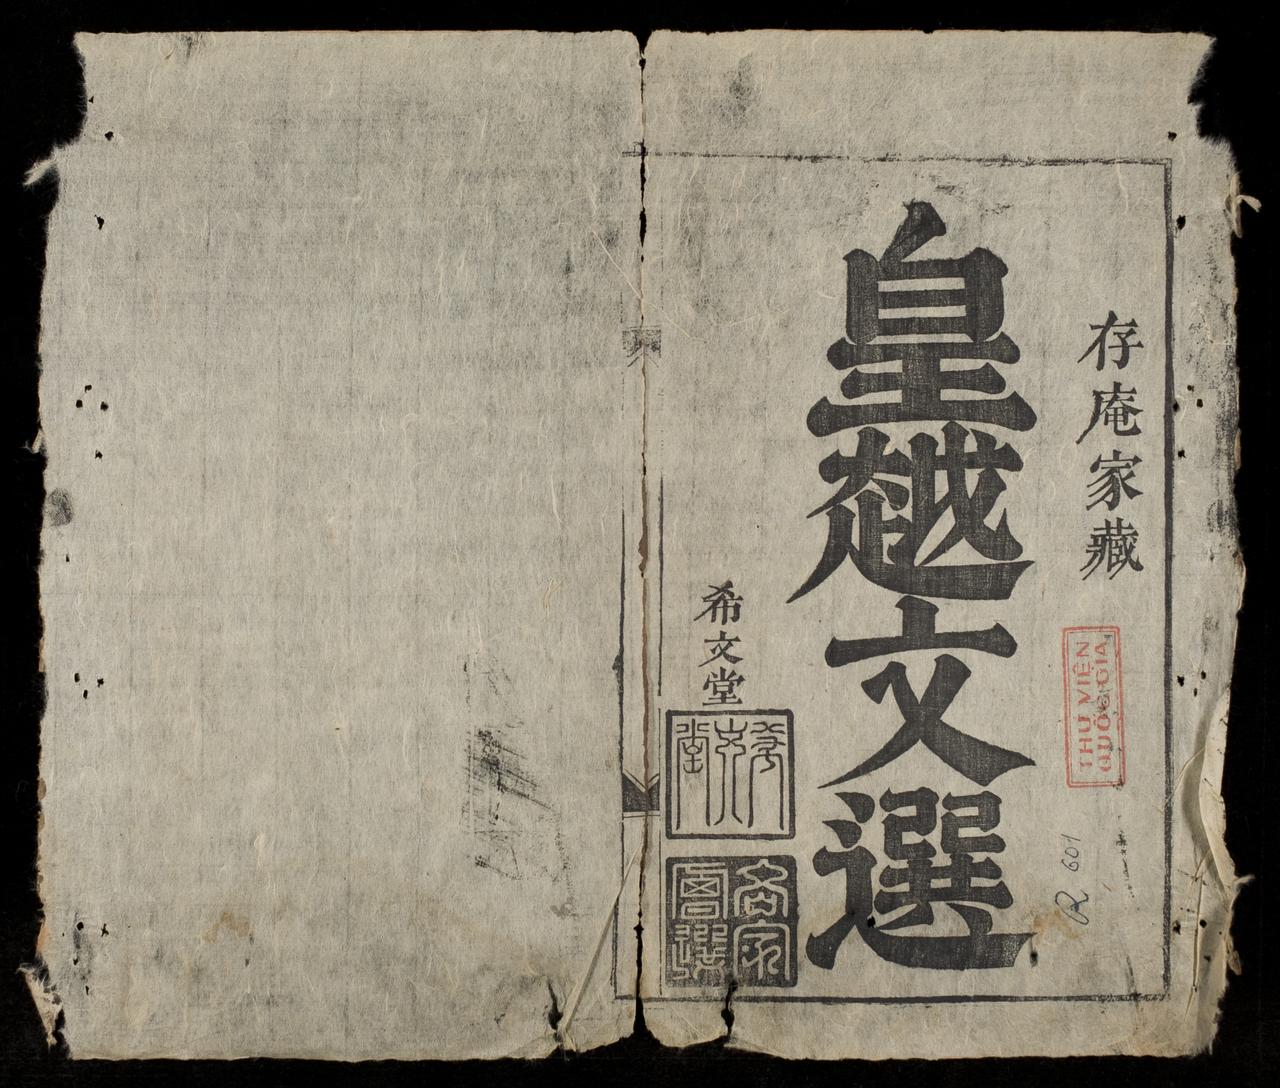 存庵家藏
皇越文選
希文堂
希文堂
名家會選
THƯ VIỆN
QUỐC GIA
R 601